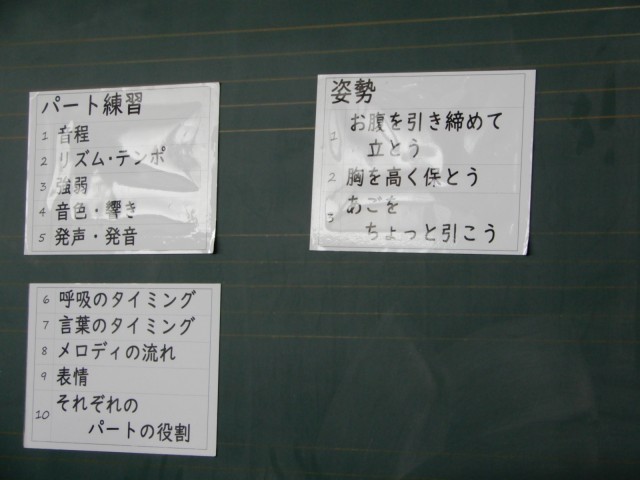 パート練習
1 音程
2 リズム・テンポ
3 強弱
4 音色・響き
5 発声・発音
6 呼吸のタイミング
7 言葉のタイミング
8 メロディの流れ
9 表情
10 それぞれの
パートの役割
姿勢
1 お腹を引き締めて
立とう
2 胸を高く保とう
3 あごを
ちょっと引こう